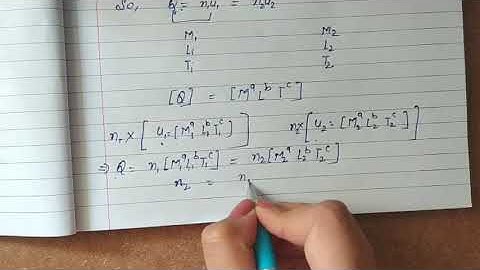 So, Q = n₁u₁ = n₂u₂
M₁ M₂
L₁ L₂
T₁ T₂
[Q] = [Mᵃ Lᵇ Tᶜ]
n₁× [ u₁ = [M₁ᵃ L₁ᵇ T₁ᶜ] ] n₂× [ u₂ = [M₂ᵃ L₂ᵇ T₂ᶜ] ]
⇒ Q = n₁ [M₁ᵃ L₁ᵇ T₁ᶜ] = n₂ [M₂ᵃ L₂ᵇ T₂ᶜ]
n₂ = n₁